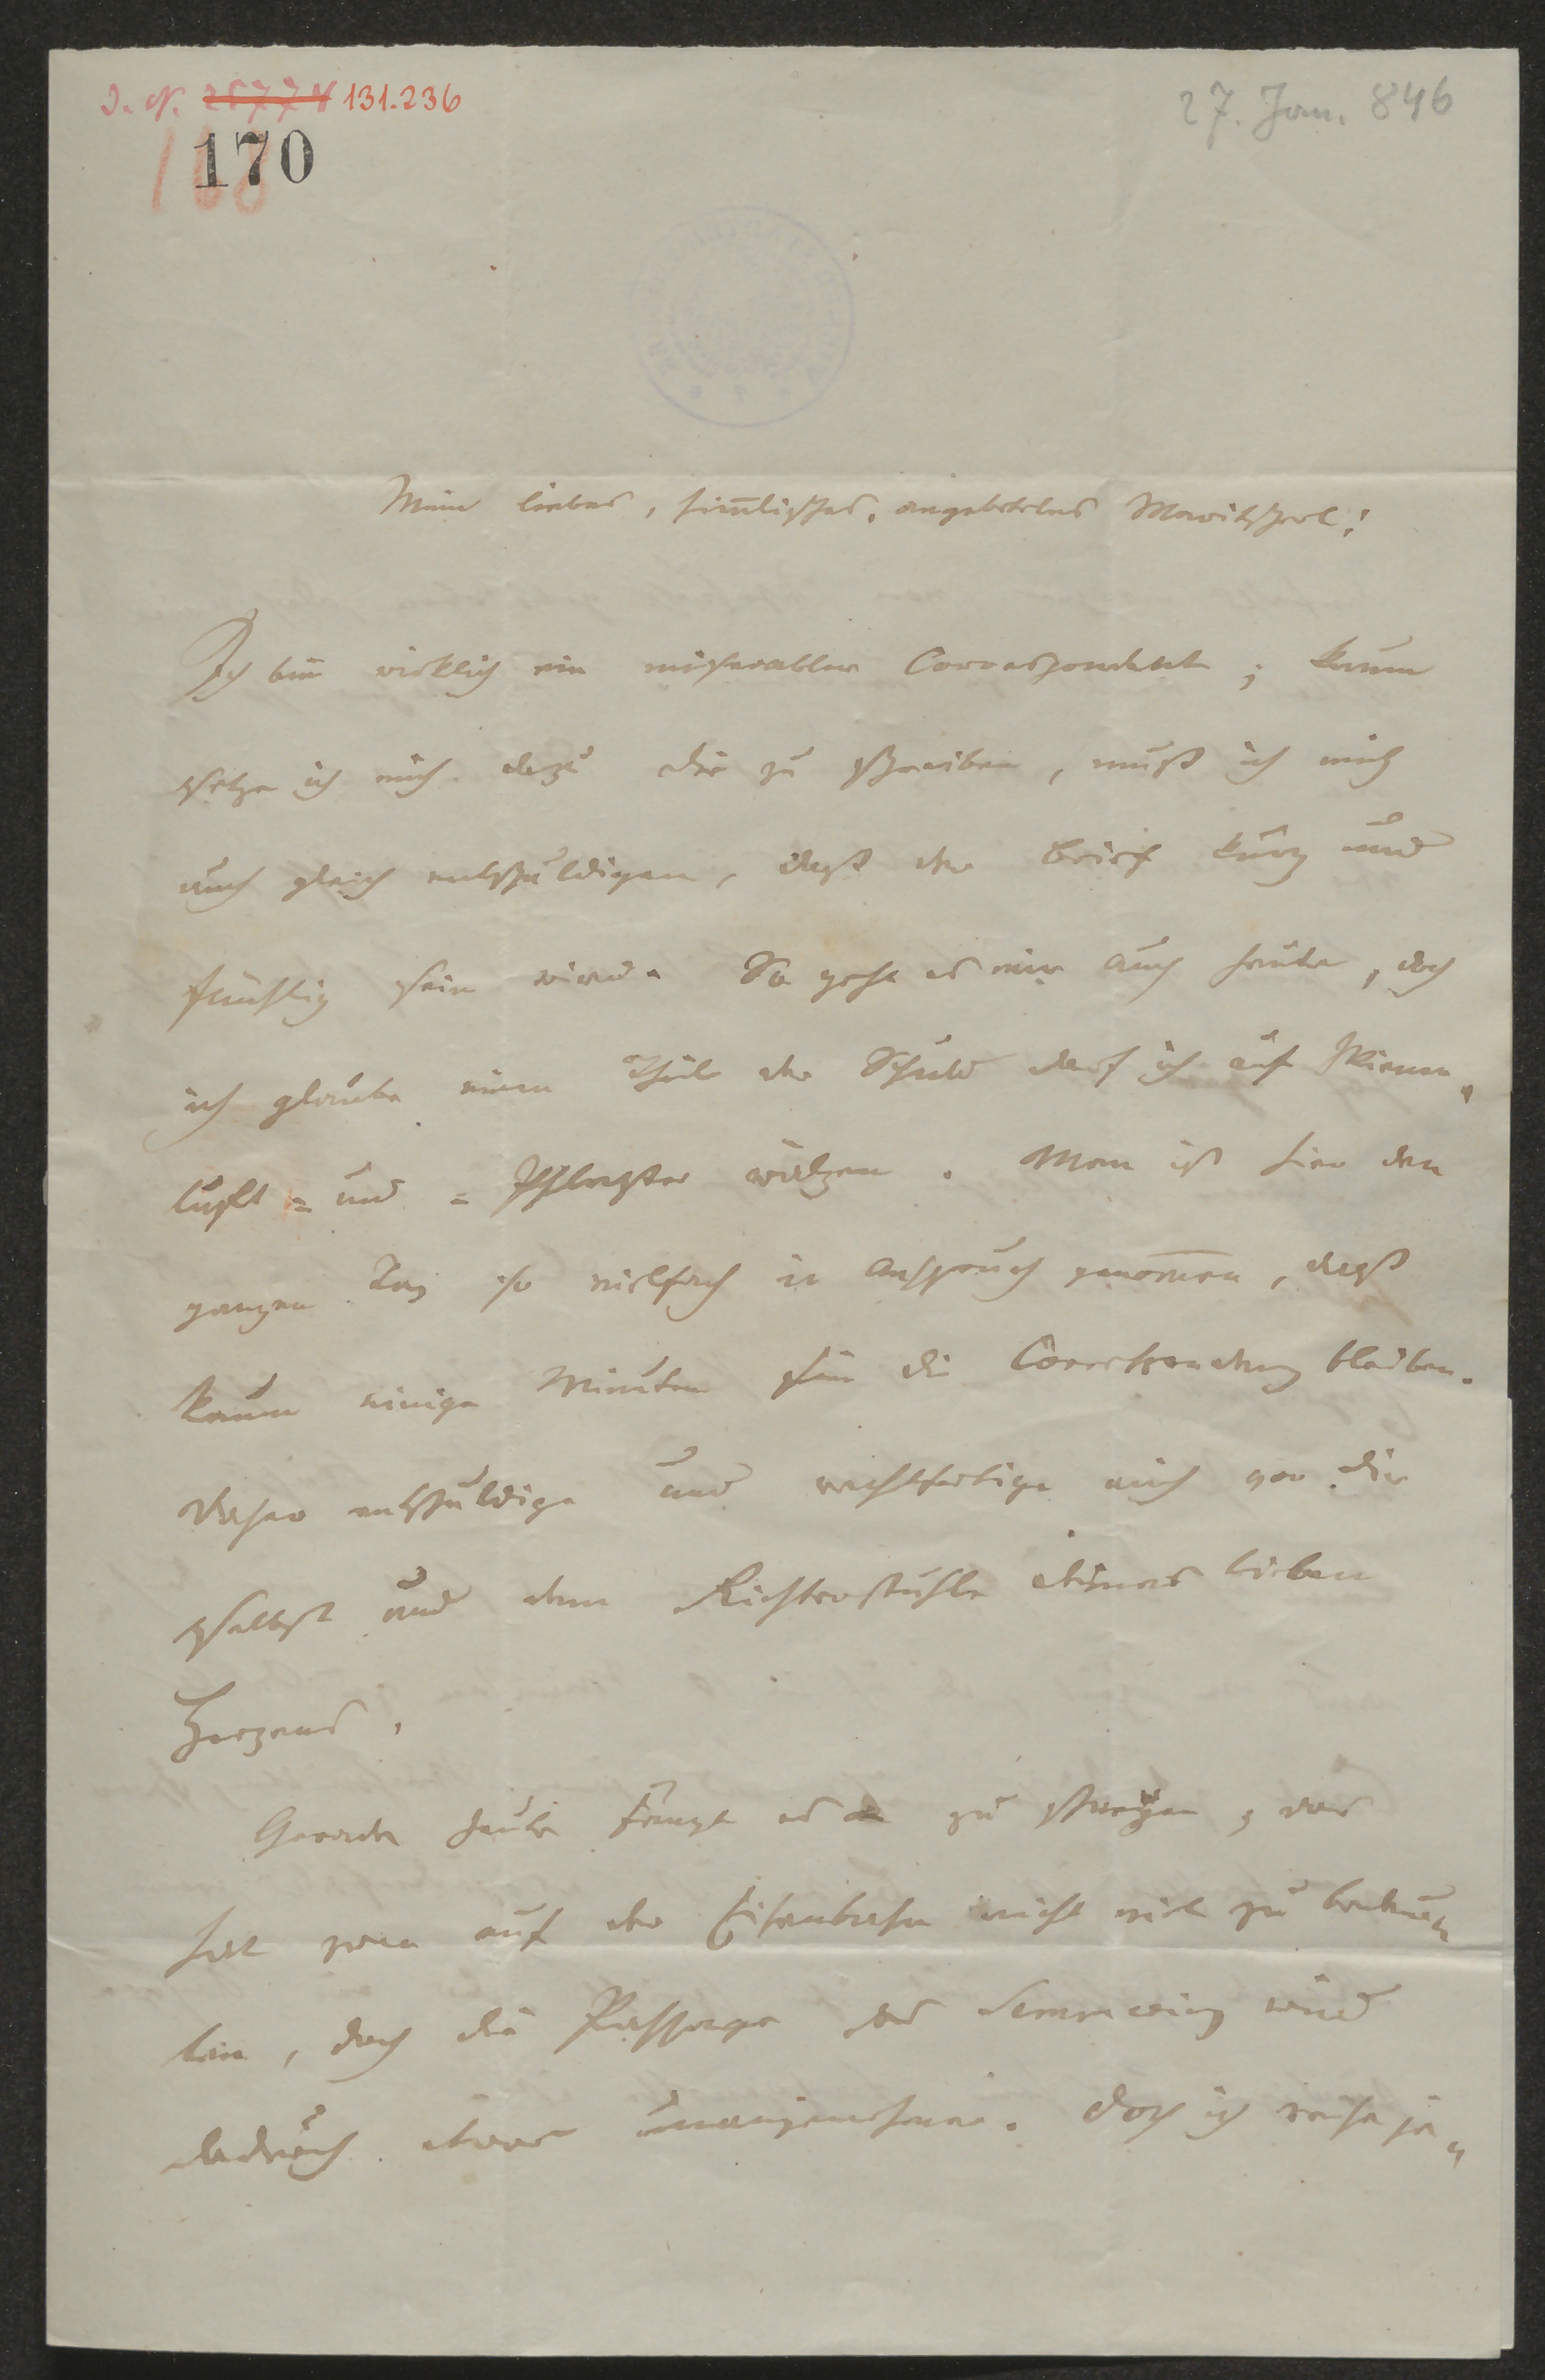 J. N. 25774 131.236
27. Jan. 846
168
170
Mein liebes, him̅lisches, angebetetes Maritscherl!
Ich bin wirklich ein miserabler Correspondent; kaum
setze ich mich dazu dir zu schreiben, muß ich mich
auch gleich entschuldigen, daß der Brief kurz und
flüchtig sein wird. So geht es mir auch heute, doch
ich glaube einen Theil der Schuld darf ich auf Wiener
luft = und = Pflaster wälzen. Man ist hier den
ganzen Tag so vielfach in Anspruch genom̅en, daß
kaum einige Minuten für die Correspondenz bleiben.
Daher entschuldige und rechtfertige mich vor dir
selbst und dem Richterstuhle deines lieben
Herzens.
Gerade heute fängt es an zu schneyen, das
hat zwar auf der Eisenbahn nicht viel zu bedeu=
ten, doch die Passage des Semmering wird
dadurch etwas unangenehmer. Doch ich reise ja